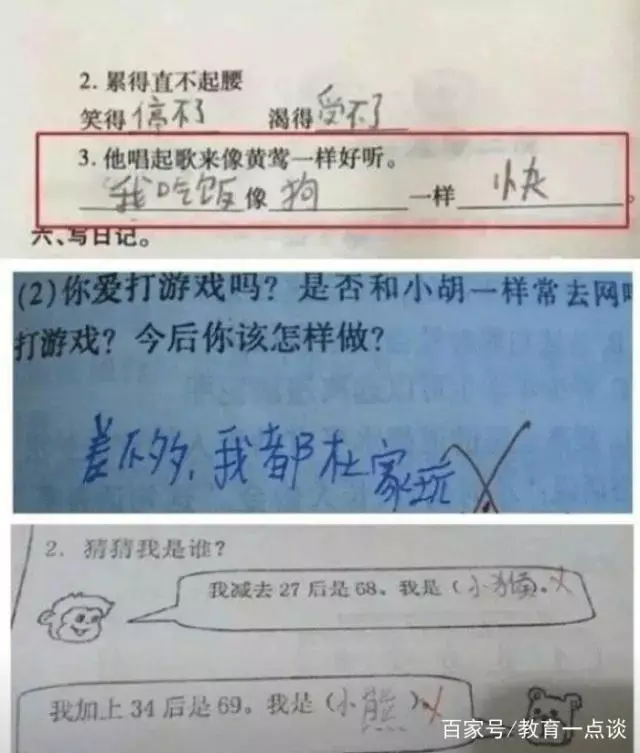 2. 累得直不起腰
笑得停不了 渴得受不了
3. 他唱起歌来像黄莺一样好听。
我吃饭像狗一样快。
六、写日记。
(2)你爱打游戏吗？是否和小胡一样常去网吧
打游戏？今后你该怎样做？
差不多，我都在家玩
2. 猜猜我是谁？
我减去 27 后是 68。我是（小猴）。
我加上 34 后是 69。我是（小熊）
百家号/教育一点谈